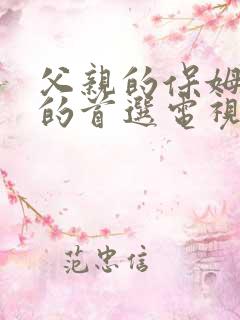 父親的保姆
的首選電視
范忠信